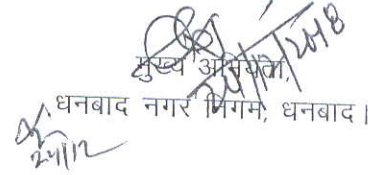 मुख्य अभियंता,
धनबाद नगर निगम, धनबाद।
24/12